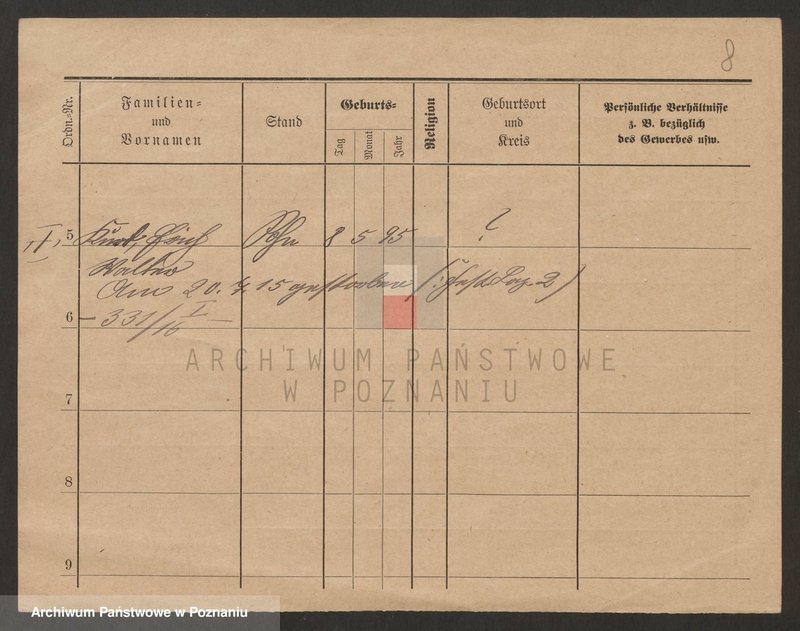 8
Ordn.=Nr.
Familien=
und
Vornamen
Stand
Geburts=
Tag
Monat
Jahr
Religion
Geburtsort
und
Kreis
Persönliche Verhältnisse
z. B. bezüglich
des Gewerbes usw.
5 Kurt, Erich 8 5 95 ?
Walter
Am 20. 15 gestorben
6 – 331/16 I –
ARCHIWUM PAŃSTWOWE
W POZNANIU
7
8
9
Archiwum Państwowe w Poznaniu